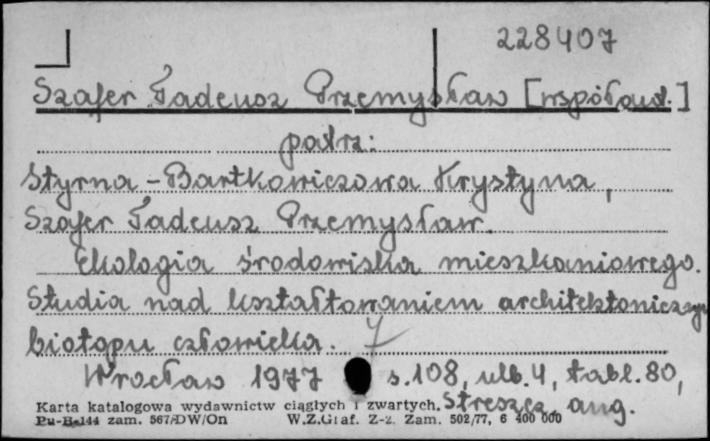 228407
Szafer Tadeusz Przemysław [współaut.]
patrz:
Styrna-Bartkowiczowa Krystyna,
Szafer Tadeusz Przemysław.
Ekologia środowiska mieszkaniowego.
Studia nad kształtowaniem architektonicznym
biotopu człowieka. 7
Wrocław 1977 s.108, ulb.4, tabl.80,
Streszcz. ang.
Karta katalogowa wydawnictw ciągłych i zwartych.
Pu-B-144 zam. 567/DW/On W.Z.Graf. Z-z. Zam. 502/77, 6 400 000